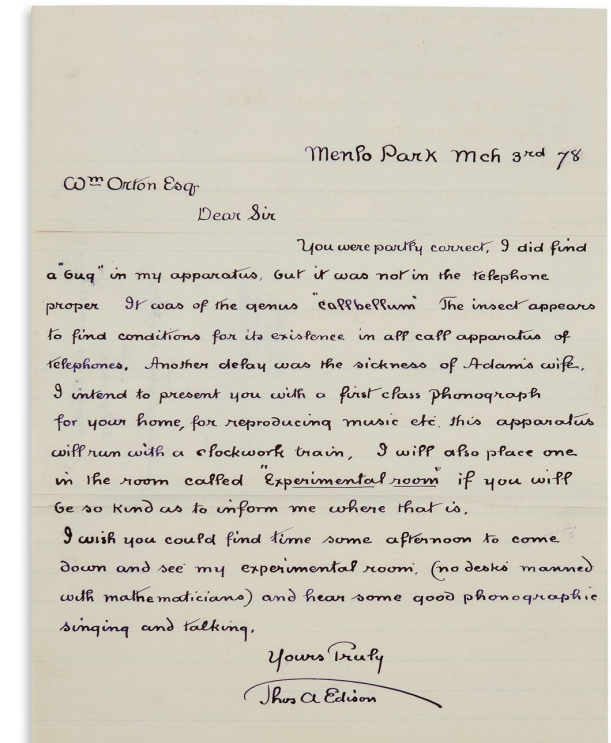 Menlo Park Mch 3rd 78
Wm Orton Esq
Dear Sir
You were partly correct, I did find
a "bug" in my apparatus, but it was not in the telephone
proper It was of the genus "callbellum" The insect appears
to find conditions for its existence in all call apparatus of
telephones. Another delay was the sickness of Adam's wife.
I intend to present you with a first class phonograph
for your home, for reproducing music etc. this apparatus
will run with a clockwork train, I will also place one
in the room called "Experimental room" if you will
be so kind as to inform me where that is.
I wish you could find time some afternoon to come
down and see my experimental room, (no desks manned
with mathematicians) and hear some good phonographic
singing and talking.
Yours Truly
Thos A Edison